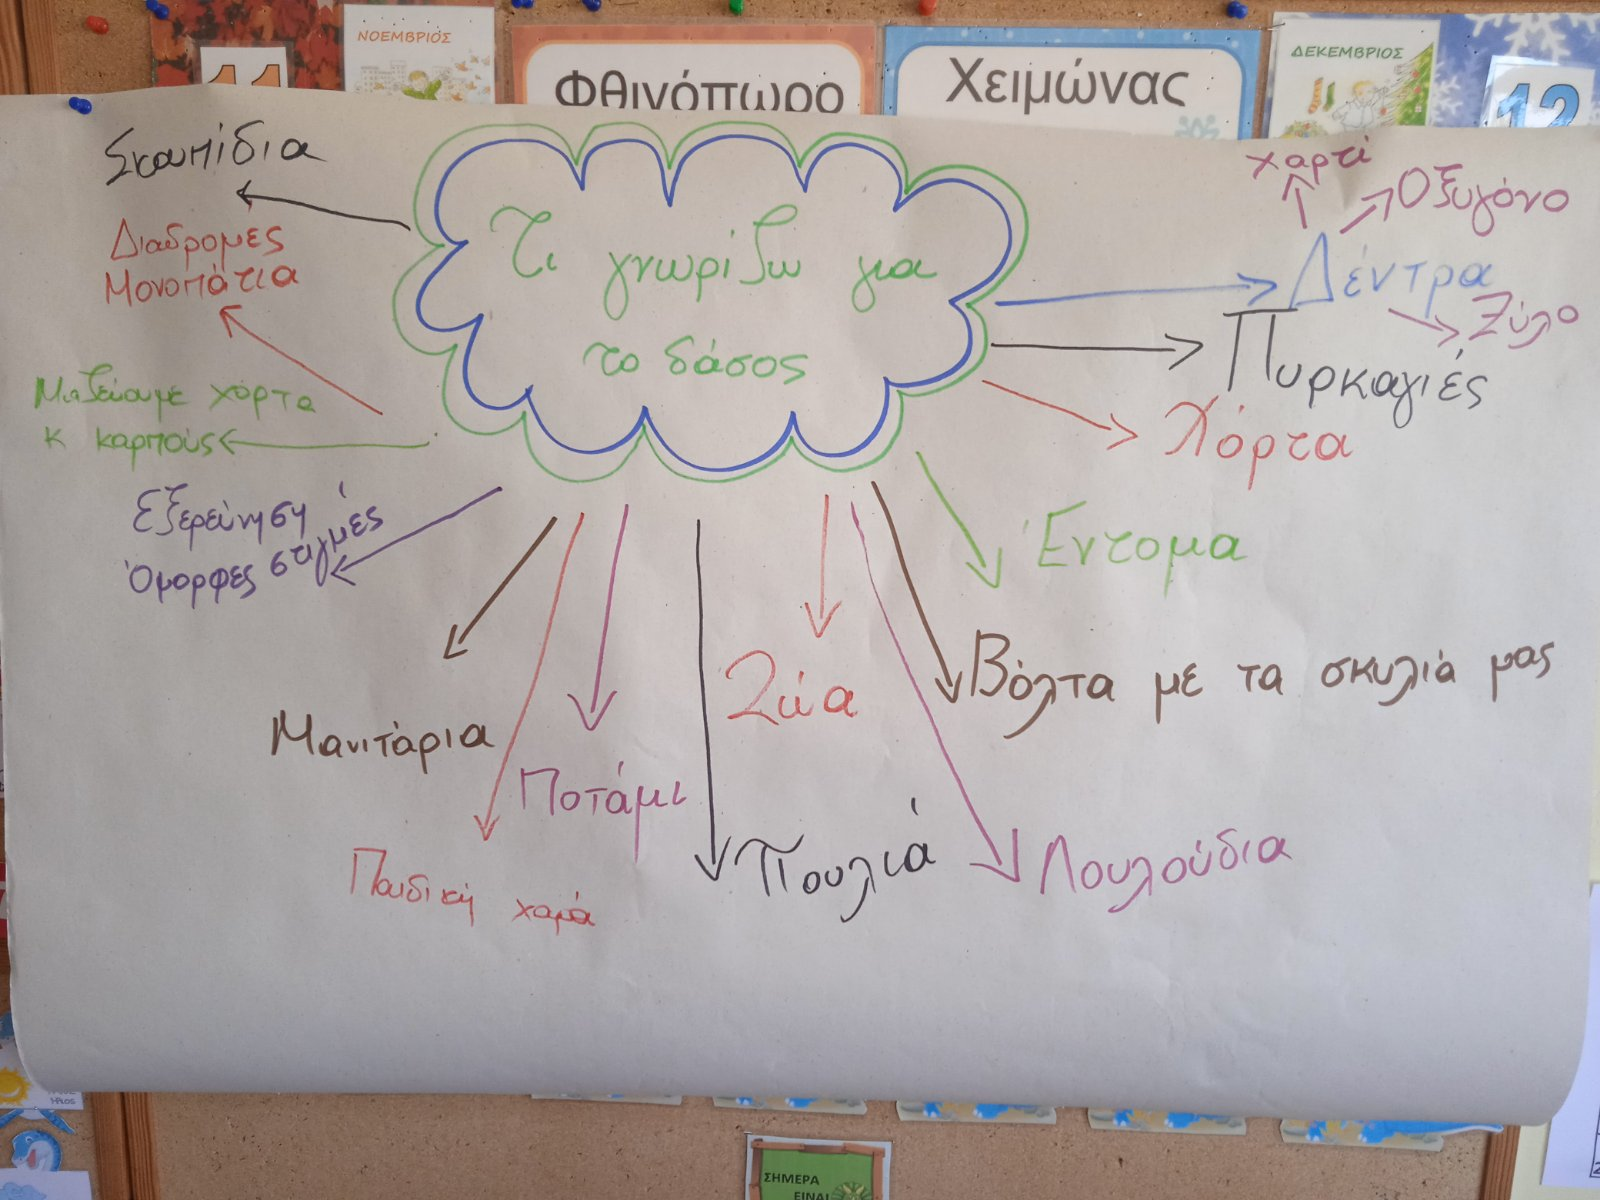 11
ΝΟΕΜΒΡΙΟΣ
Φθινόπωρο
Χειμώνας
ΔΕΚΕΜΒΡΙΟΣ
12
Τι γνωρίζω για
το δάσος
Σκουπίδια
Διαδρομές
Μονοπάτια
Μαζεύουμε χόρτα
κ καρπούς
Εξερεύνηση
Όμορφες στιγμές
Μανιτάρια
Παιδική χαρά
Ποτάμι
Πουλιά
Ζώα
Λουλούδια
Βόλτα με τα σκυλιά μας
Έντομα
Χόρτα
Πυρκαγιές
Δέντρα
χαρτί
Οξυγόνο
Ξύλο
ΣΗΜΕΡΑ
ΕΙΝΑΙ